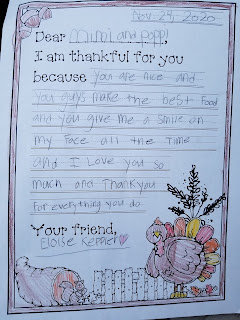 Nov. 24, 2020
Dear mimi and popp!
I am thankful for you
because you are nice and
you guys make the best food
and you give me a smile on
my face all the time
and I Love you so
much and Thankyou
for everything you do
Your friend,
Eloise Kepner